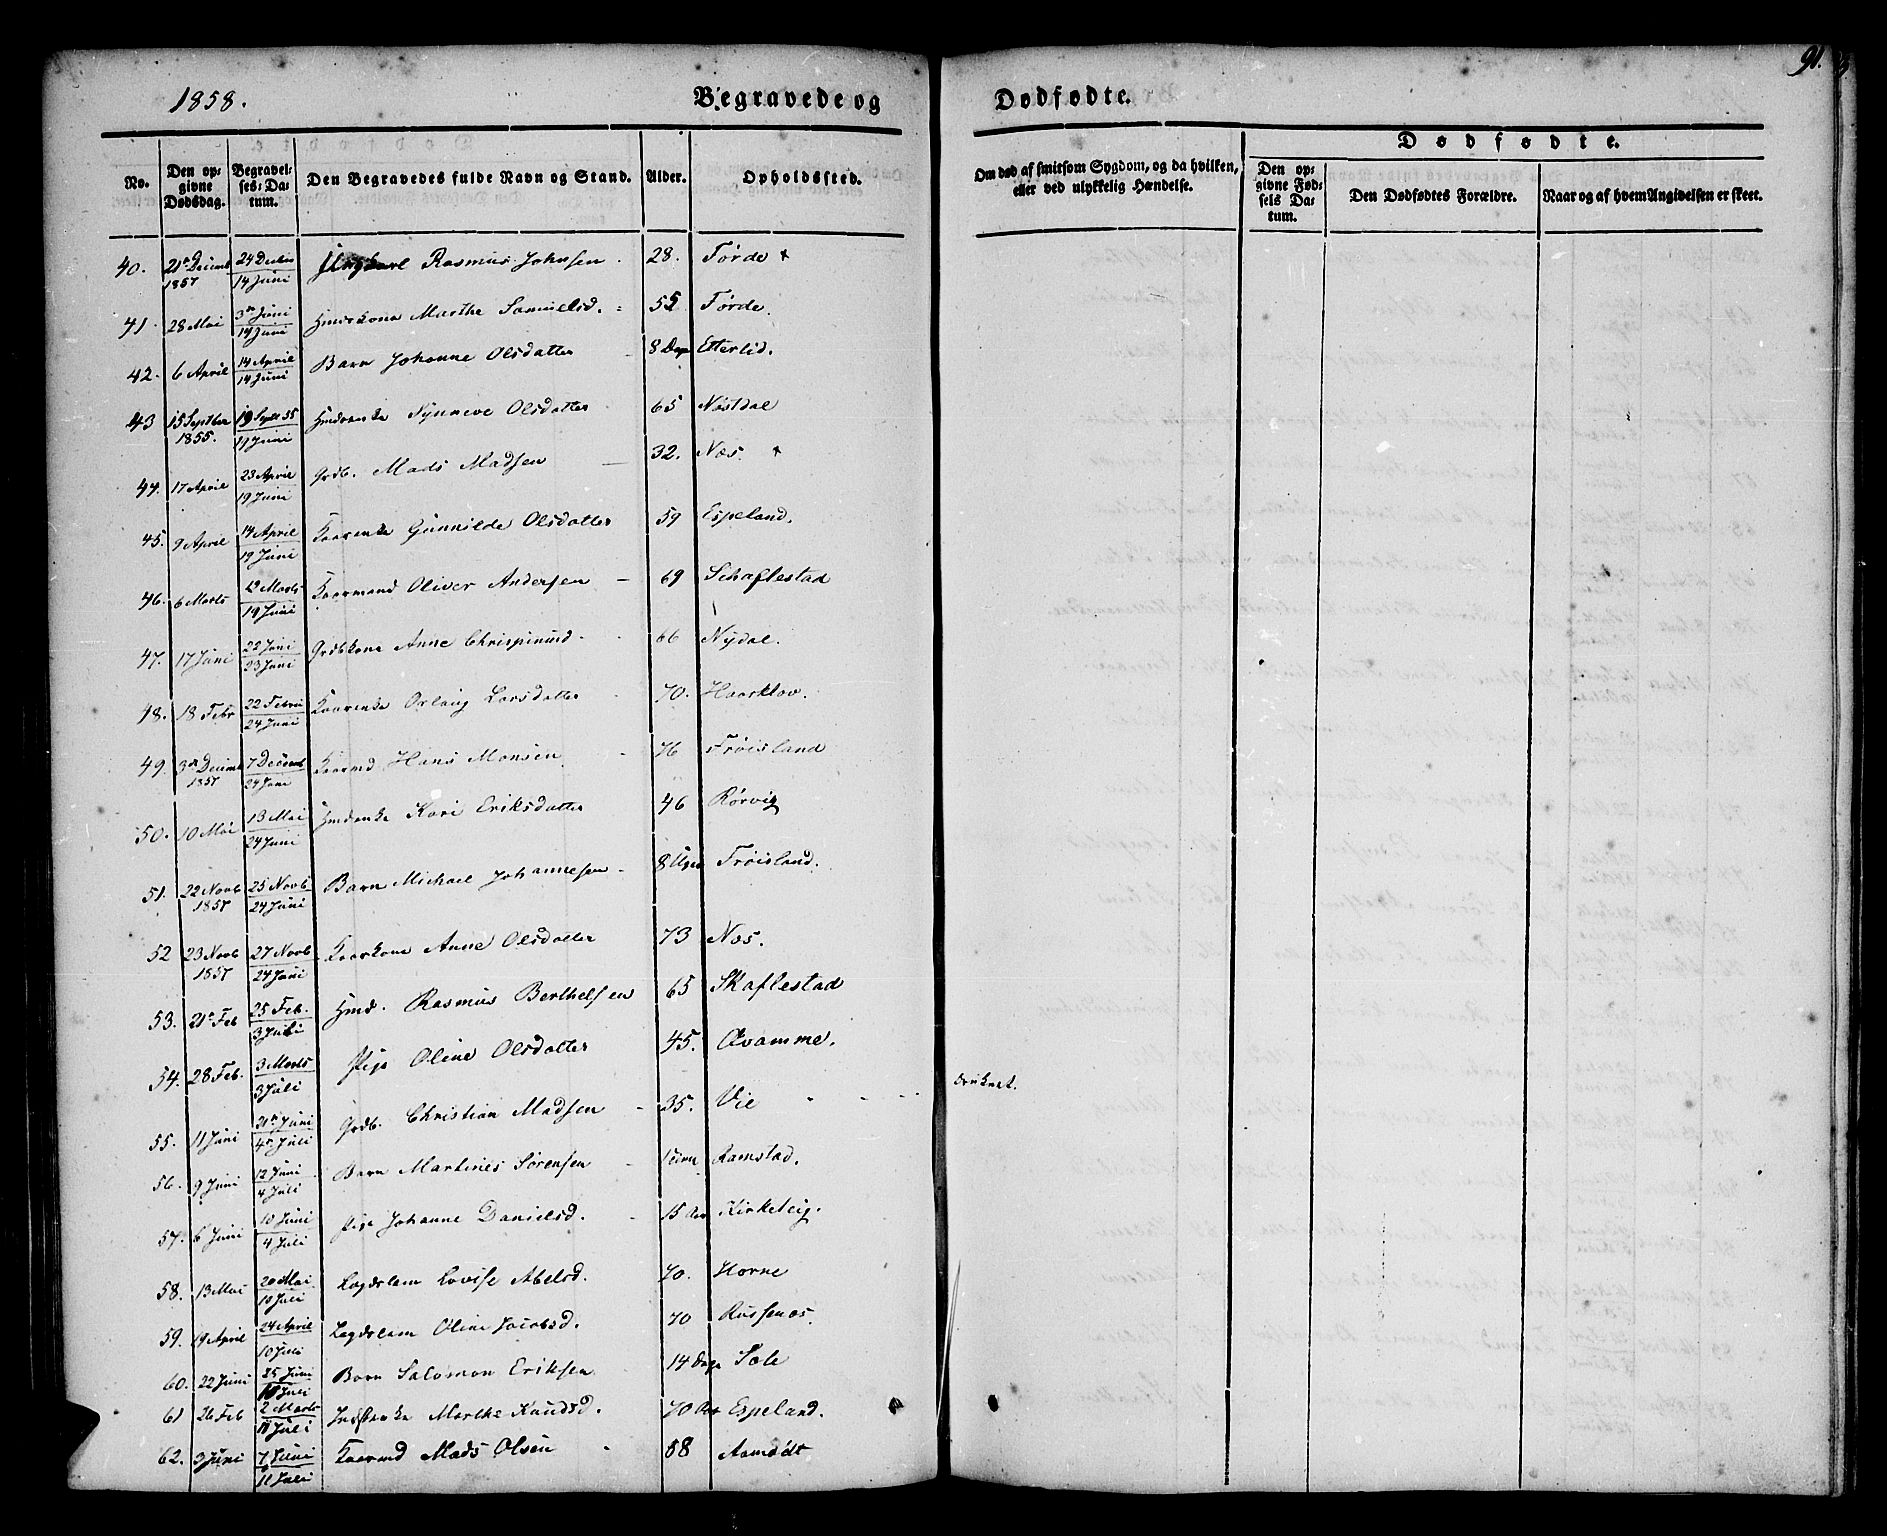 1858.
Begravede og
Dødfødte.
91.
No.
Den opgivne Dødsdag.
Begravelses-Datum.
Den Begravedes fulde Navn og Stand.
Alder.
Opholdssted.
Om død af smitsom Sygdom, og da hvilken, eller ved ulykkelig Hændelse.
Dødfødte.
Den opgivne Fødsels Datum.
Den Dødfødtes Forældre.
Naar og af hvem Angivelsen er skeet.
40. 21de Decemb 1857 24 Decbr 14 Juni Ungkarl Rasmus Johnsen 28. Førde
41. 28 Mai 3die Juni 14 Juni Hmdskone Marthe Samuelsd. 55 Førde.
42. 6 April 14 April 14 Juni Barn Johanne Olsdatter 8 Dage Etterlid.
43 15 Septber 1855. 19 Septb 55 19 Juni Hmdenke Synneve Olsdatter 65 Nøstdal
44. 17 April 23 April 19 Juni Grdb. Mads Madsen 32. Næs.
45. 9 April 14 April 19 Juni Kaarenke Gunnilde Olsdatter 59 Espeland.
46. 6 Marts 12 Marts 19 Juni Kaarmand Oliver Andersen 69 Schaflestad
47. 17 Juni 22 Juni 23 Juni Grdbkone Anne Chrispinusd. 66 Nydal.
48. 18 Febr 22 Febru 24 Juni Kaarenke Orlaug Larsdatter 70. Haarklov.
49. 3die Decemb 1857 7 Decemb 24 Juni Kaarmd Hans Monsen 76 Frøisland
50. 10 Mai 13 Mai 24 Juni Hmdenke Kari Eriksdatter 46 Rørvig
51. 22 Novb 1857 25 Novb 24 Juni Barn Michael Johannesen 8 Uger Frøisland.
52 23 Novb 1857 27 Novb 24 Juni Kaarkone Anne Olsdatter 73 Næs.
53. 21de Feb 25 Feb. 3 Juli Hmd. Rasmus Berthelsen 65 Skaflestad
54. 28 Feb. 3 Marts 3 Juli Pige Oline Olsdatter 45. Qvamme.
55. 11 Juni 21de Juni 4de Juli Grdb. Christian Madsen 35. Vie druknet.
56. 9 Juni 12 Juni 4 Juli Barn Martines Sørensen Ramstad.
57. 6 Juni 10 Juni 4 Juli Pige Johanne Danielsd. 15 Aar Kirketeig.
58. 13 Mai 20 Mai 10 Juli Lægdslem Lovise Abelsd. 70. Horne
59. 19 April 24 April 10 Juli Lægdslem Oline Jacobsd. 70 Russenæs.
60. 22 Juni 25 Juni 10 Juli Barn Salomon Eriksen 14 Dage Sæle
61 26 Feb 2 Marts 11 Juli Indstenke Marthe Knudsd. 70 Aar Espeland.
62. 3 Juni 7 Juni 11 Juli Kaarmd Mads Olsen 58 Aamødt